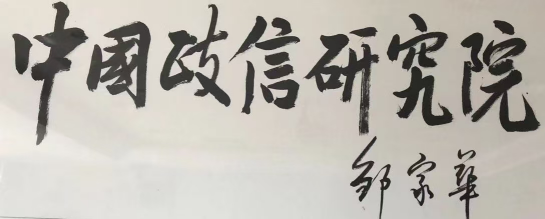 中國政信研究院
邹家華